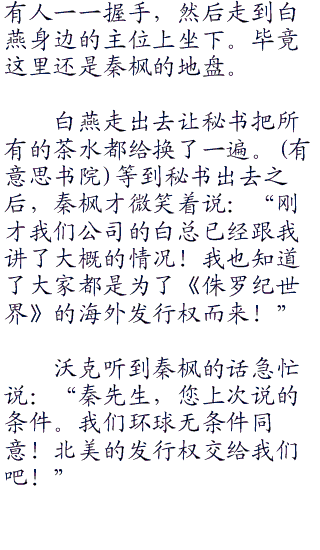 有人一一握手，然后走到白
燕身边的主位上坐下。毕竟
这里还是秦枫的地盘。
白燕走出去让秘书把所
有的茶水都给换了一遍。(有
意思书院)等到秘书出去之
后，秦枫才微笑着说：“刚
才我们公司的白总已经跟我
讲了大概的情况！我也知道
了大家都是为了《侏罗纪世
界》的海外发行权而来！”
沃克听到秦枫的话急忙
说：“秦先生，您上次说的
条件。我们环球无条件同
意！北美的发行权交给我们
吧！”